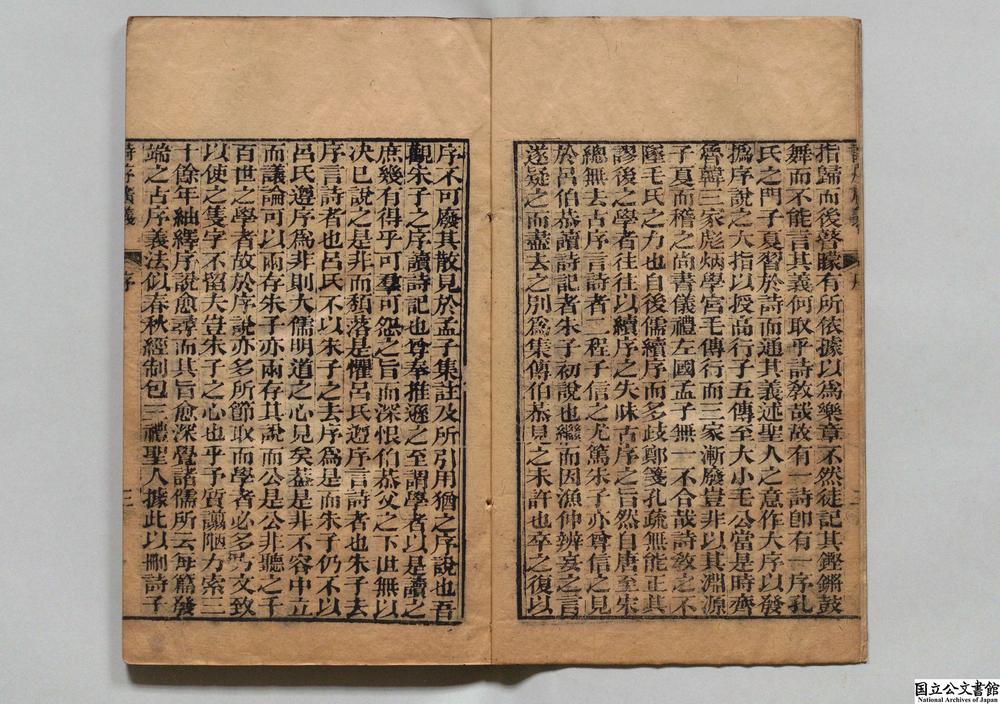 指歸而後瞽矇有所依據以爲樂章不然徒記其鏗鏘鼓
舞而不能言其義何取乎詩敎哉故有一詩卽有一序孔
氏之門子夏習於詩而通其義述聖人之意作大序以發
撝序說之大指以授高行子五傳至大小毛公當是時齊
魯韓三家彪炳學宮毛傳行而三家漸廢豈非以其淵源
子夏而稽之尚書儀禮左國孟子無一不合哉詩敎之不
墜毛氏之力也自後儒續序而多歧鄭箋孔疏無能正其
謬後之學者往往以續序之失昧古序之旨然自唐至宋
總無去古序言詩者二程子信之尤篤朱子亦嘗信之見
於呂伯恭讀詩記者朱子初說也繼而因漁仲辨妄之言
遂疑之而盡去之別爲集傳伯恭見之未許也卒之復以
序不可廢其散見於孟子集註及所引用猶之序說也吾
觀朱子之序讀詩記也尊奉推遜之至謂學者以是讀之
庶幾有得乎可羣可怨之旨而深恨伯恭父之下世無以
決已說之是非而頹落是懼呂氏遵序言詩者也朱子去
序言詩者也呂氏不以朱子之去序爲是而朱子仍不以
呂氏遵序爲非則大儒明道之心見矣蓋是非不容中立
而議論可以兩存朱子亦兩存其說而公是公非聽之千
百世之學者故於序說亦多所節取而學者必多方文致
以使之隻字不留夫豈朱子之心也乎予質譾陋力索三
十餘年紬繹序說愈尋而其旨愈深覺諸儒所云每篇發
端之古序義法似春秋經制包三禮聖人據此以刪詩子
詩序廣義
序
三
国立公文書館
National Archives of Japan